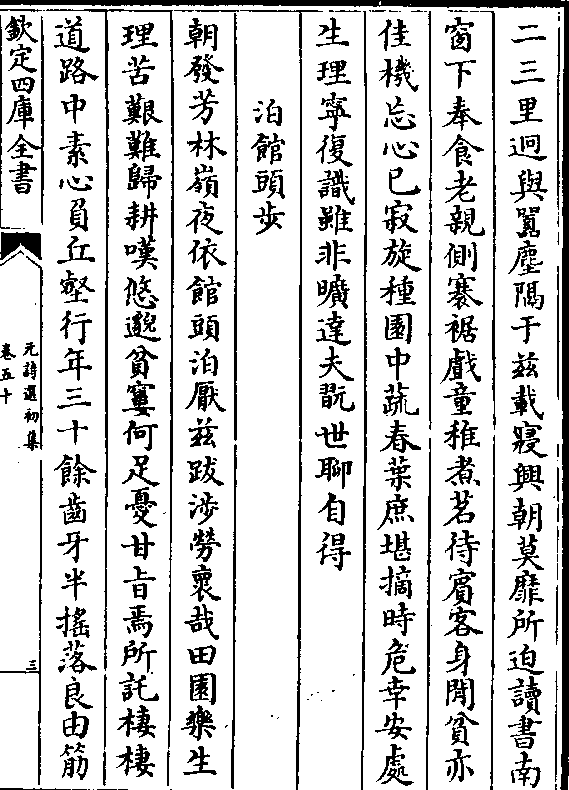 二三里迥與嚣塵隔于兹載寢興朝莫靡所迫讀書南
窗下奉食老親側褰裾戲童稚煮茗待賓客身閒貧亦
佳機忘心已寂旋種園中蔬春葉庶堪摘時危幸安處
生理寧復識雖非曠達夫翫世聊自得
泊館頭步
朝發芳林嶺夜依館頭泊厭兹跋涉勞褱哉田園樂生
理苦艱難歸耕嘆悠邈貧窶何足憂甘旨焉所託棲棲
道路中素心負丘壑行年三十餘齒牙半摇落良由筋
欽定四庫全書
元詩選初集
卷五十
三